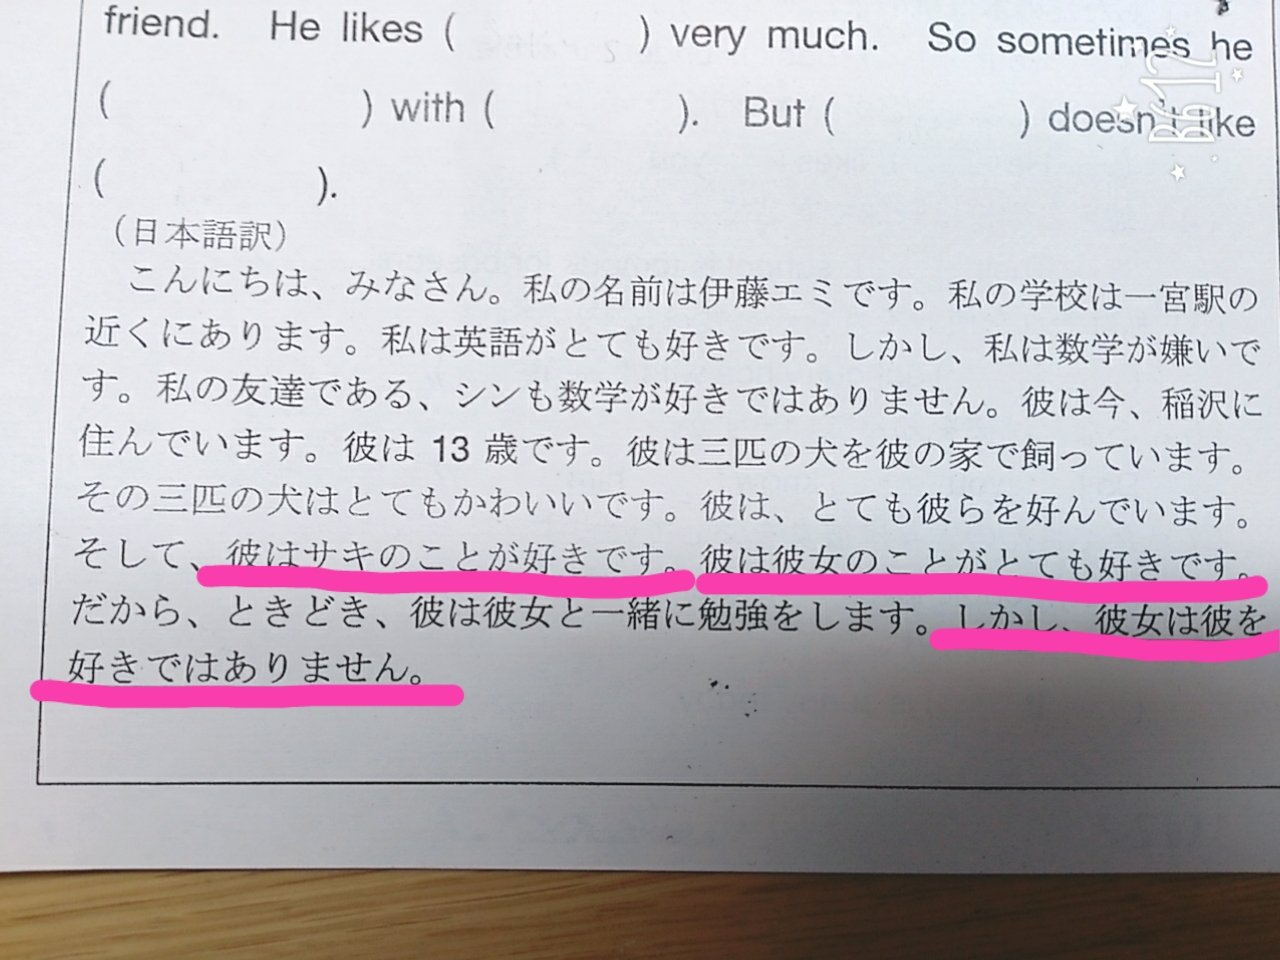 friend. He likes ( ) very much. So sometimes he
( ) with ( ). But ( ) doesn't like
( ).
(日本語訳)
こんにちは、みなさん。私の名前は伊藤エミです。私の学校は一宮駅の
近くにあります。私は英語がとても好きです。しかし、私は数学が嫌いで
す。私の友達である、シンも数学が好きではありません。彼は今、稲沢に
住んでいます。彼は 13 歳です。彼は三匹の犬を彼の家で飼っています。
その三匹の犬はとてもかわいいです。彼は、とても彼らを好んでいます。
そして、彼はサキのことが好きです。彼は彼女のことがとても好きです。
だから、ときどき、彼は彼女と一緒に勉強をします。しかし、彼女は彼を
好きではありません。
B612